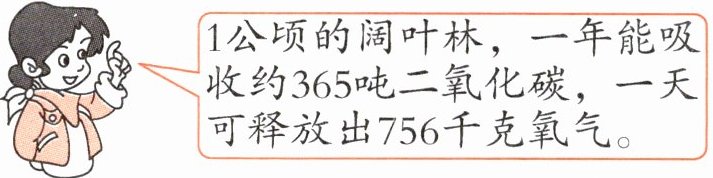 1公顷的阔叶林，一年能吸
收约365吨二氧化碳，一天
可释放出756千克氧气。